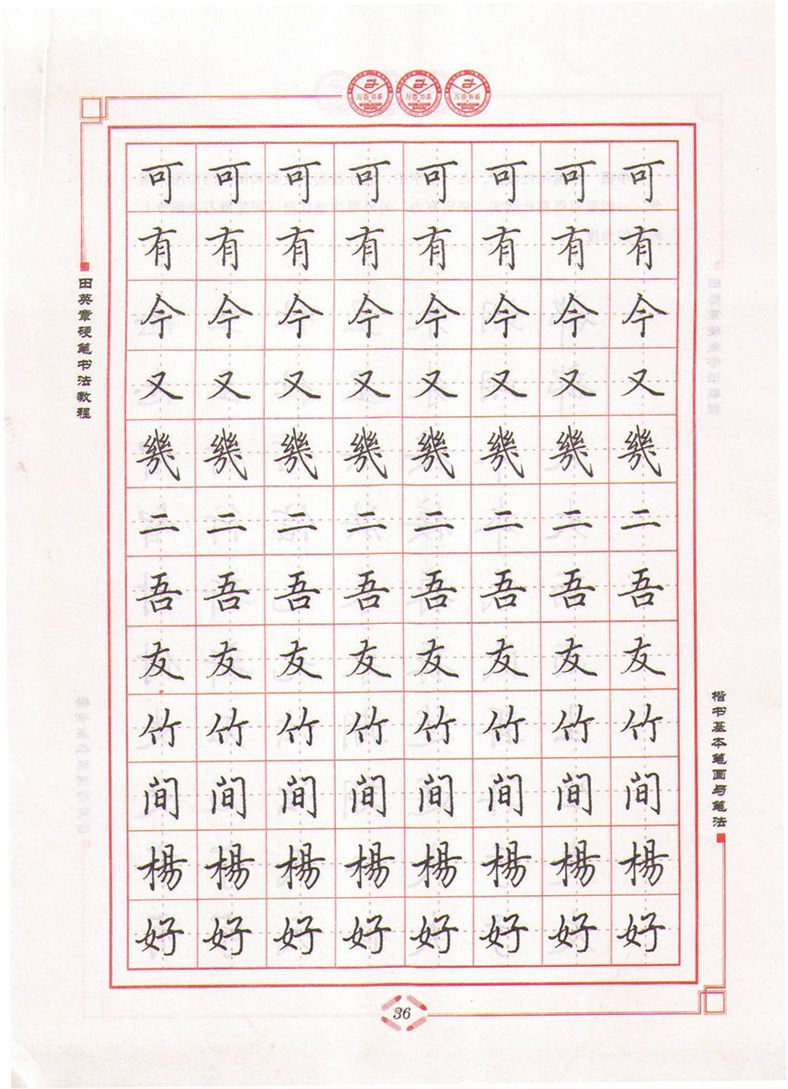 万卷书系 万卷书系 万卷书系
田英章硬笔书法教程
可可可可可可可可
有有有有有有有有
今今今今今今今今
又又又又又又又又
幾幾幾幾幾幾幾幾
二二二二二二二二
吾吾吾吾吾吾吾吾
友友友友友友友友
竹竹竹竹竹竹竹竹
间间间间间间间间
楊楊楊楊楊楊楊楊
好好好好好好好好
楷书基本笔画与笔法
36